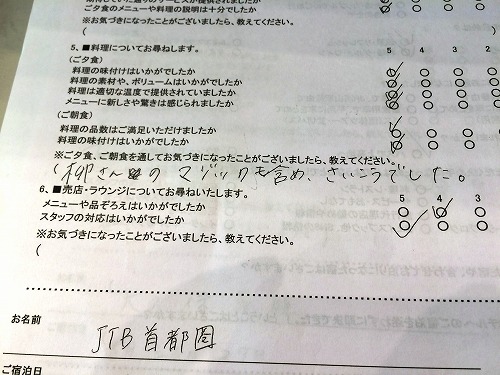 ご夕食のメニューや料理の説明は十分でしたか
※お気づきになったことがございましたら、教えてください。
(
5、■料理についてお尋ねします。 5 4 3 2
(ご夕食)
料理の味付けはいかがでしたか
料理の素材や、ボリュームはいかがでしたか
料理は適切な温度で提供されていましたか
メニューに新しさや驚きは感じられましたか
(ご朝食)
料理の品数はご満足いただけましたか
料理の味付けはいかがでしたか
※ご夕食、ご朝食を通してお気づきになったことがございましたら、教えください。
(柳さん のマジックも含め、さいこうでした。
6、■売店・ラウンジについてお尋ねいたします。 5 4 3
メニューや品ぞろえはいかがでしたか
スタッフの対応はいかがでしたか
※お気づきになったことがございましたら、教えてください。
(
お名前
JTB首都圏
ご宿泊日